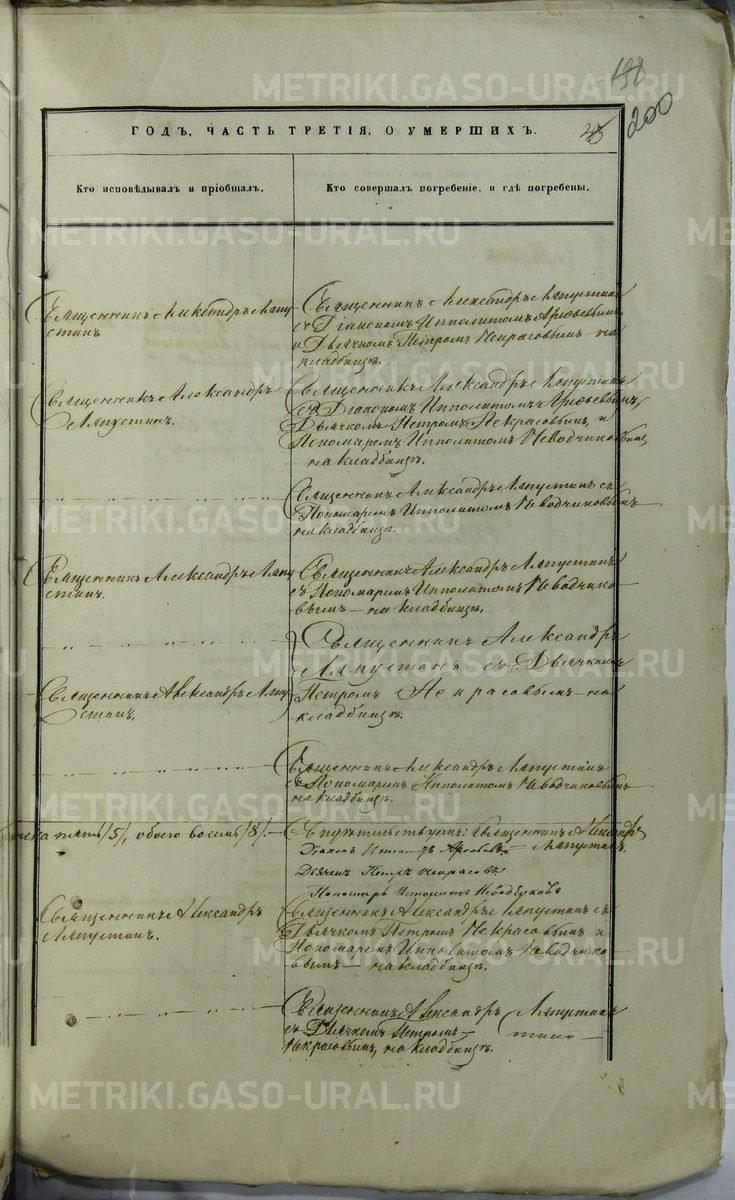 198
200
35
ГОДЪ, ЧАСТЬ ТРЕТІЯ, О УМЕРШИХЪ.
Кто исповѣдывалъ и пріобщалъ.
Кто совершалъ погребеніе, и гдѣ погребены.
Священникъ Александръ Ляпу
стинъ
Священникъ Александръ Ляпустинъ
съ Діакономъ Ипполитомъ Арефьевымъ
и Дьячкомъ Петромъ Некрасовымъ на
кладбищѣ.
Священникъ Александръ
Ляпустинъ.
Священникъ Александръ Ляпустинъ
съ Діакономъ Ипполитомъ Арефьевымъ,
Дьячкомъ Петромъ Некрасовымъ, и
Пономаремъ Ипполитомъ Неводчиковымъ
на кладбищѣ.
Священникъ Александръ Ляпустинъ съ
Пономаремъ Ипполитомъ Неводчиковымъ
на кладбищѣ.
Священникъ Александръ Ляпу
стинъ.
Священникъ Александръ Ляпустинъ
съ Пономаремъ Ипполитомъ Неводчико-
вымъ — на кладбищѣ.
Священникъ Александръ
Ляпустинъ съ Дьячкомъ
Петромъ Некрасовымъ — на
кладбищѣ.
Священникъ Александръ Ляпу
стинъ.
Священникъ Александръ Ляпустинъ
съ Пономаремъ Ипполитомъ Неводчиковымъ
на кладбищѣ.
пять /5/, обоего восемь /8/. —
Свидѣтельствуетъ: Священникъ Александръ
Ляпустинъ.
Діаконъ Ипполитъ Арефьевъ
Дьячекъ Петръ Некрасовъ
Пономарь Ипполитъ Неводчиковъ
Священникъ Александръ
Ляпустинъ.
Священникъ Александръ Ляпустинъ съ
Дьячкомъ Петромъ Некрасовымъ и
Пономаремъ Ипполитомъ Неводчико-
вымъ — на кладбищѣ.
Священникъ Александръ Ляпустинъ
съ Дьячкомъ Петромъ
Некрасовымъ, на кладбищѣ.
METRIKI.GASO-URAL.RU
METRIKI.GASO-URAL.RU
METRIKI.GASO-URAL.RU
METRIKI.GASO-URAL.RU
METRIKI.GASO-URAL.RU
METRIKI.GASO-URAL.RU
METRIKI.GASO-URAL.RU
METRIKI.GASO-URAL.RU